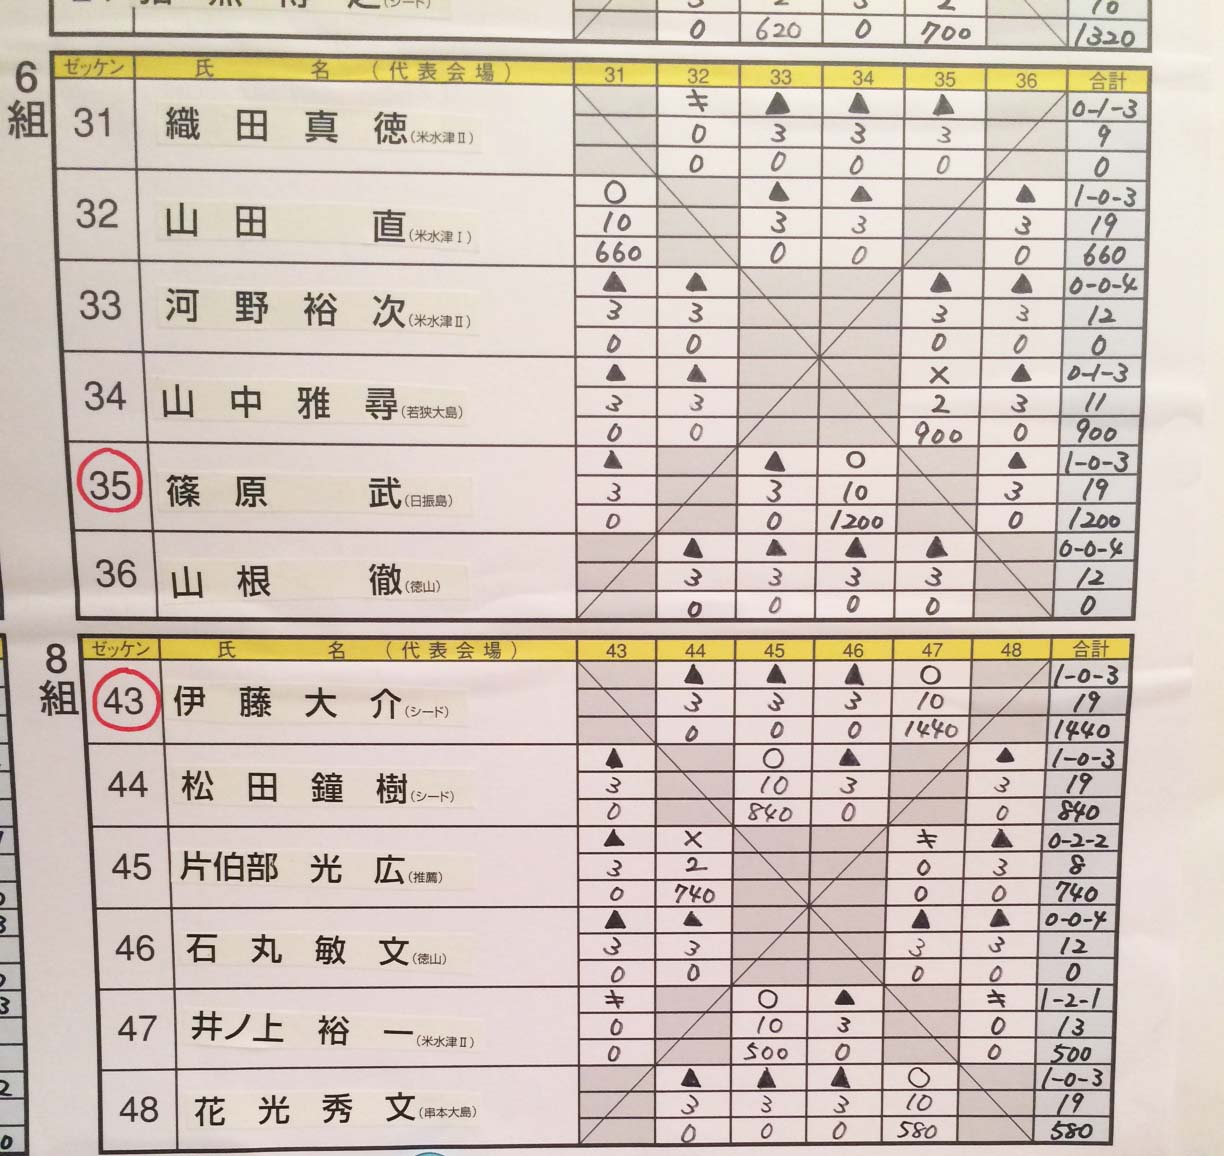 0 620 0 700 1320
6組
ゼッケン 氏 名 (代表会場) 31 32 33 34 35 36 合計
31 織田真徳(米水津Ⅱ) キ ▲ ▲ ▲ 0-1-3
0 3 3 3 9
0 0 0 0 0
32 山田直(米水津Ⅰ) ○ ▲ ▲ ▲ 1-0-3
10 3 3 3 19
660 0 0 0 660
33 河野裕次(米水津Ⅱ) ▲ ▲ ▲ ▲ 0-0-4
3 3 3 3 12
0 0 0 0 0
34 山中雅尋(若狭大島) ▲ ▲ × ▲ 0-1-3
3 3 2 3 11
0 0 900 0 900
35 篠原武(日振島) ▲ ▲ ○ ▲ 1-0-3
3 3 10 3 19
0 0 1200 0 1200
36 山根徹(徳山) ▲ ▲ ▲ ▲ 0-0-4
3 3 3 3 12
0 0 0 0 0
8組
ゼッケン 氏 名 (代表会場) 43 44 45 46 47 48 合計
43 伊藤大介(シード) ▲ ▲ ▲ ○ 1-0-3
3 3 3 10 19
0 0 0 1440 1440
44 松田鐘樹(シード) ▲ ○ ▲ ▲ 1-0-3
3 10 3 3 19
0 840 0 0 840
45 片伯部光広(推薦) ▲ × キ ▲ 0-2-2
3 2 0 3 8
0 740 0 0 740
46 石丸敏文(徳山) ▲ ▲ ▲ ▲ 0-0-4
3 3 3 3 12
0 0 0 0 0
47 井ノ上裕一(米水津Ⅱ) キ ○ ▲ キ 1-2-1
0 10 3 0 13
0 500 0 0 500
48 花光秀文(串本大島) ▲ ▲ ▲ ○ 1-0-3
3 3 3 10 19
0 0 0 580 580